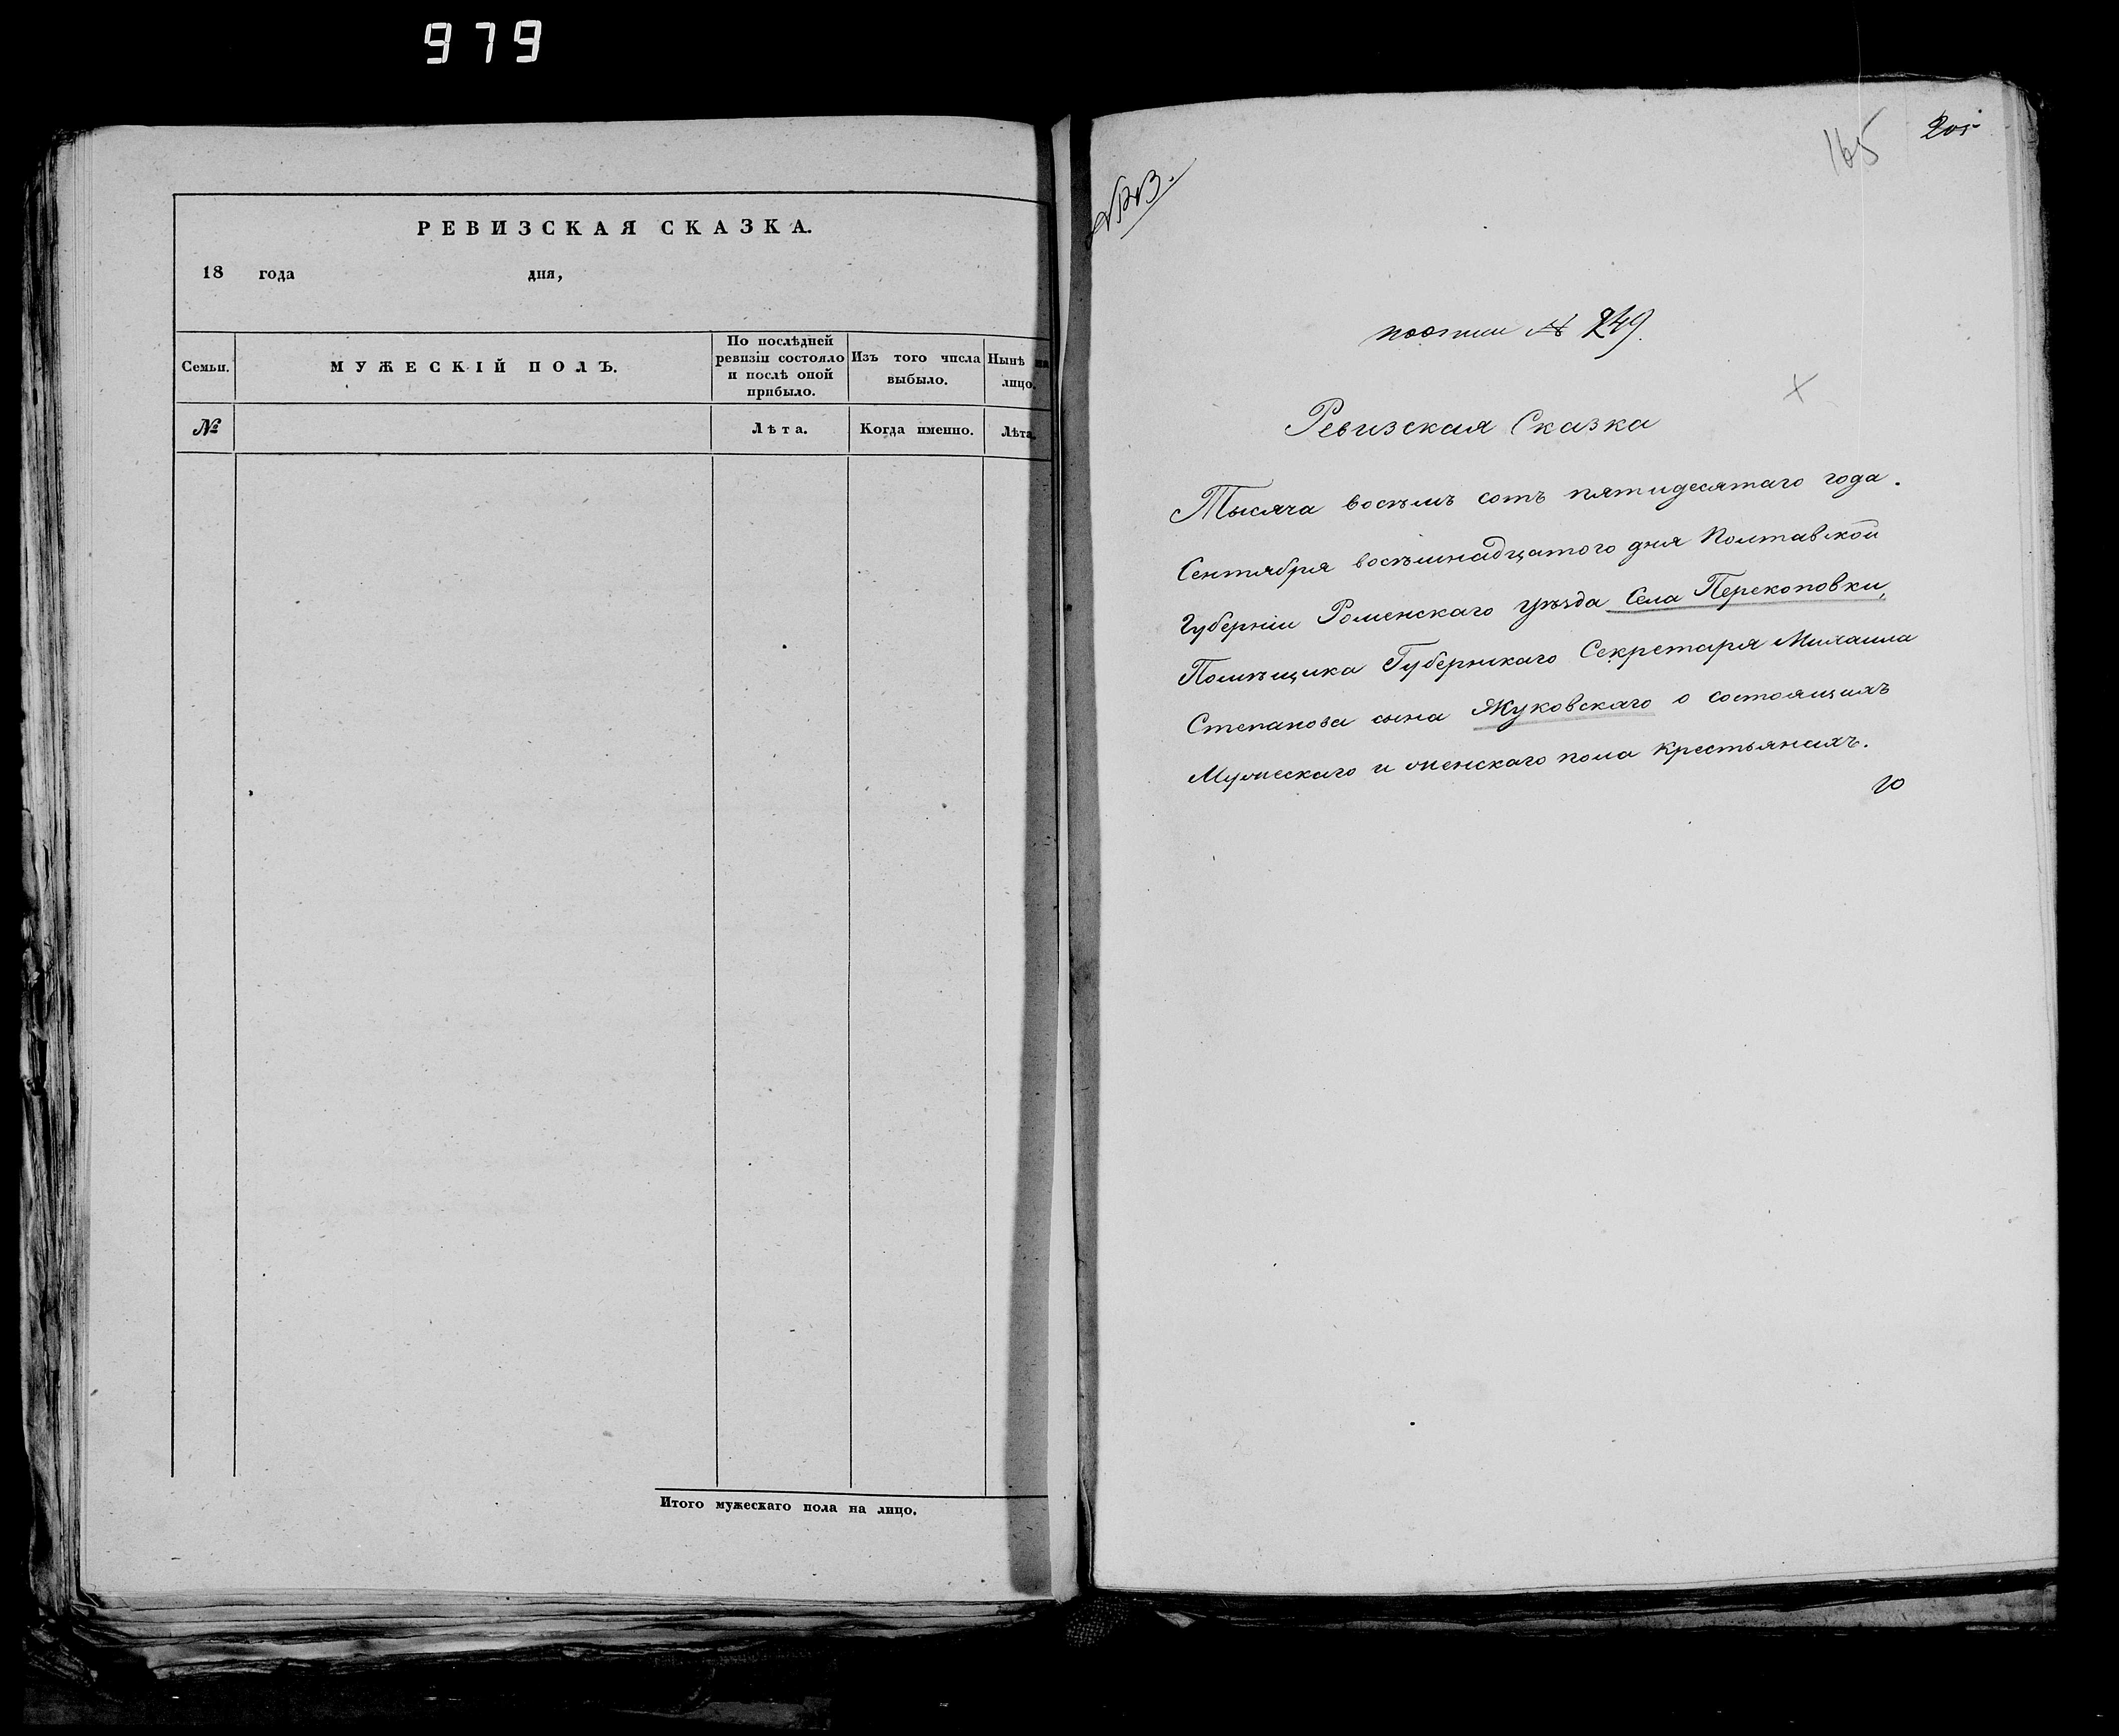 979
РЕВИЗСКАЯ СКАЗКА.
18 года дня,
Семьи.
МУЖЕСКІЙ ПОЛЪ.
По послѣдней ревизіи состояло и послѣ оной прибыло.
Изъ того числа выбыло.
Нынѣ на лицо.
№
Лѣта.
Когда именно.
Лѣта.
Итого мужескаго пола на лицо.
165
205
№ 249.
Ревизская Сказка
Тысяча восѣмъ сотъ пятидесятаго года.
Сентября восѣмнадцатого дня Полтавской
Губерніи Роменскаго уѣзда Села Перекоповки,
Помѣщика Губернскаго Секретаря Михаила
Степанова сына Жуковскаго о состоящихъ
Мужескаго и женскаго пола крестьянахъ.